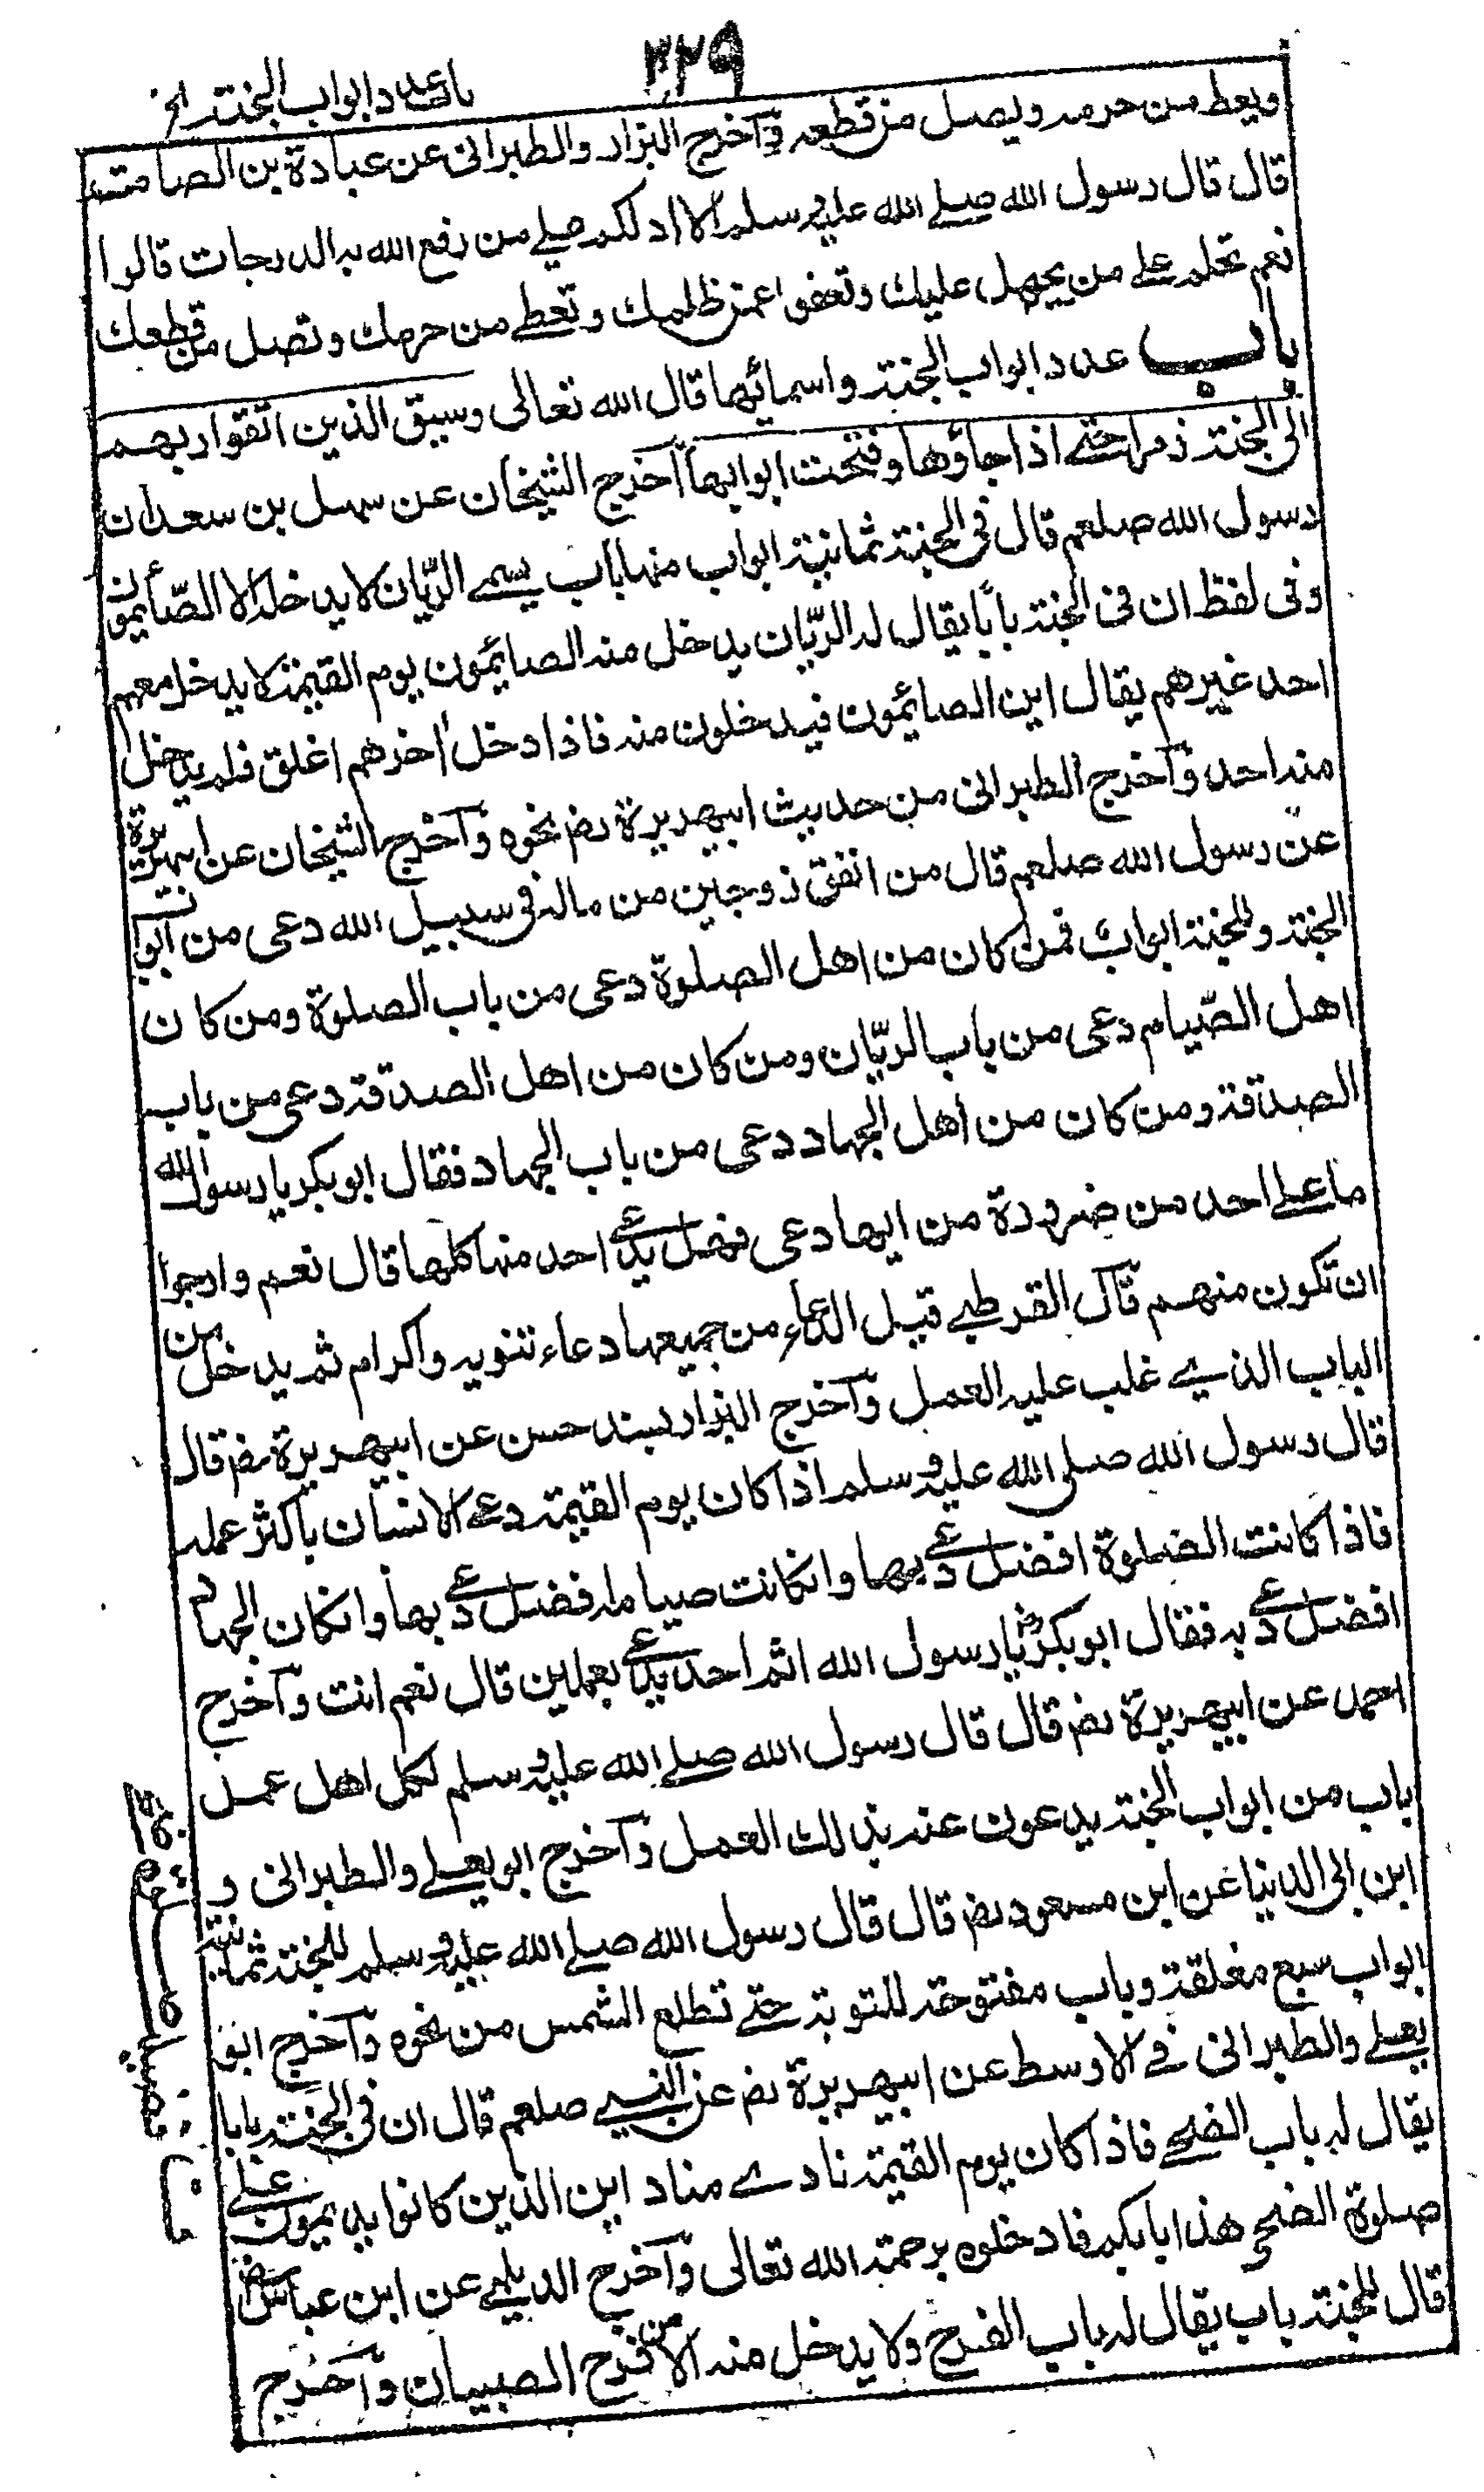 ٣٢٩
باب عدد ابواب الجنة الخ
ويعط من حرمه ويصل من قطعه وآخرج البزار والطبرانى عن عبادة بن الصامت
قال قال رسول الله صلے الله عليه وسلم الا ادلكم علے من رفع الله به الدرجات قالوا
نعم تحلم علے من يجهل عليك وتعفوا عمن ظلمك وتعطے من حرمك وتصل من قطعك
باب عدد ابواب الجنة واسمائها قال الله تعالى وسيق الذين اتقوا ربهم
الى الجنة زمرا حتے اذا جاؤها وفتحت ابوابها آخرج الشيخان عن سهل بن سعد ان
رسول الله صلعم قال فى الجنة ثمانية ابواب منها باب يسمے الريّان لا يدخله الا الصّائمون
وفى لفظ ان فى الجنة بابًا يقال له الريّان يدخل منه الصائمون يوم القيمة لا يدخل معهم
احد غيرهم يقال اين الصائمون فيدخلون منه فاذا دخل اخرهم اغلق فلم يدخل
منه احد وآخرج الطبرانى من حديث ابيهريرة رضہ نحوه وآخرج الشيخان عن ابيهريرة
عن رسول الله صلعم قال من انفق زوجين من ماله فى سبيل الله دعى من ابواب
الجنة وللجنة ابواب فمن كان من اهل الصلوة دعى من باب الصلوة ومن كان
اهل الصّيام دعى من باب الريّان ومن كان من اهل الصدقة دعى من باب
الصدقة ومن كان من اهل الجهاد دعى من باب الجهاد فقال ابو بكر يا رسول الله
ما علے احد من ضرورة من ايها دعى فهل يدعے احد منها كلها قال نعم وارجوا
ان تكون منهم قال القرطبے قيل الدعاء من جميعها دعاء تنويه واكرام ثم يدخل من
الباب الذے غلب عليه العمل وآخرج البزار بسند حسن عن ابيهريرة رضہ قال
قال رسول الله صلى الله عليه وسلم اذا كان يوم القيمة دعے الانسان باكثر عمله
فاذا كانت الصلوة افضل دعے بها وانكانت صيامه افضل دعے بها وانكان الجهاد
افضل دعے به فقال ابوبكررض يا رسول الله اثم احد يدعے بعملين قال نعم انت وآخرج
احمد عن ابيهريرة رضہ قال قال رسول الله صلے الله عليه وسلم لكل اهل عمل
باب من ابواب الجنة يدعون عنه بذلك العمل وآخرج ابو يعلے والطبرانى و
ابن ابى الدنيا عن ابن مسعود رضہ قال قال رسول الله صلے الله عليه وسلم للجنة ثمانية
ابواب سبع مغلقة وباب مفتوحة للتوبة حتے تطلع الشمس من نحوه وآخرج ابو
يعلے والطبرانى فے الاوسط عن ابيهريرة رضہ عن النبے صلعم قال ان فى الجنة بابا
يقال له باب الضحے فاذا كان يوم القيمة نادے مناد اين الذين كانوا يديمون علے
صلوة الضحى هذا بابكم فادخلوه برحمة الله تعالى وآخرج الديلمے عن ابن عباس رض
قال للجنة باب يقال له باب الفرح ولا يدخل منه الا من فرح الصبيان وآخرج